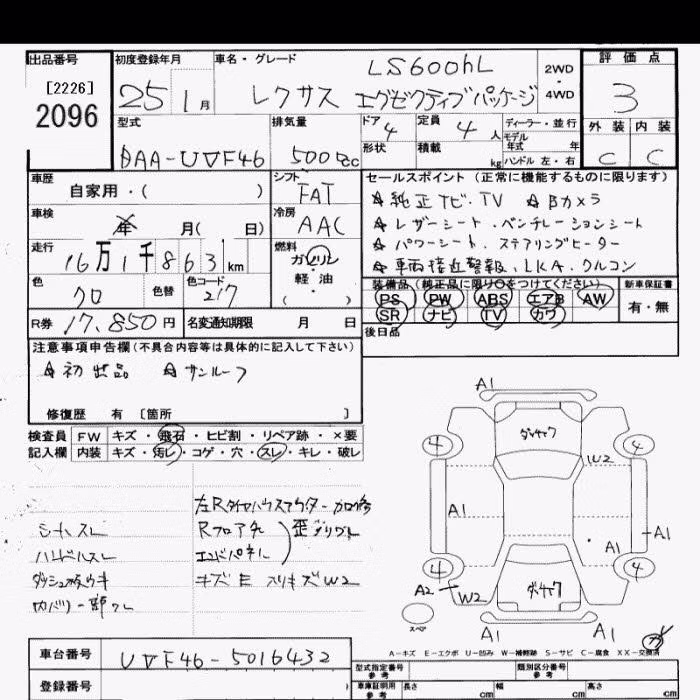 出品番号
[2226]
2096
初度登録年月
25 1月
車名・グレード
LS600hL
レクサス エグゼクティブパッケージ
2WD・4WD
評価点
3
外装 内装
C C
型式
DAA-UVF46
排気量
5000cc
ドア 4
形状
定員 4人
積載 kg
ディーラー・並行
モデル年式 年
ハンドル 左・右
車歴
自家用・( )
シフト
FAT
セールスポイント (正常に機能するものに限ります)
☆純正ナビ・TV ☆Bカメラ
☆レザーシート・ベンチレーションシート
☆パワーシート、ステアリングヒーター
☆車両接近警報、LKA、クルコン
車検
年 月( 日)
冷房
AAC
走行
16万1千863km
燃料
ガソリン
軽油
( )
色
クロ
色替
色コード
217
装備品 (純正品に限り○をつけてください)
PS PW ABS エアB AW
SR ナビ TV カワ
新車保証書
有・無
R券 17,850円
名変通知期限 月 日
後日品
注意事項申告欄(不具合内容等は具体的に記入して下さい)
☆初出品 ☆サンルーフ
修復歴 有 〔箇所 〕
検査員記入欄
FW キズ・飛石・ヒビ割・リペア跡・×要
内装 キズ・汚レ・コゲ・穴・スレ・キレ・破レ
シートスレ
ハンドルスレ
Rフロア先
エンドパネル
キズ E スリキズ W2
A1
ダッシュパック
4 4
W2
A1 A1
A1
4 4
A2 W2
スペア
A1 A1
A-キズ E-エクボ U-凹み W-補修跡 S-サビ C-腐食 XX-交換済
車台番号
UVF46-5016432
登録番号
型式指定番号 参考
類別区分番号 参考
車庫証明用 参考
長さ cm
幅 cm
高さ cm